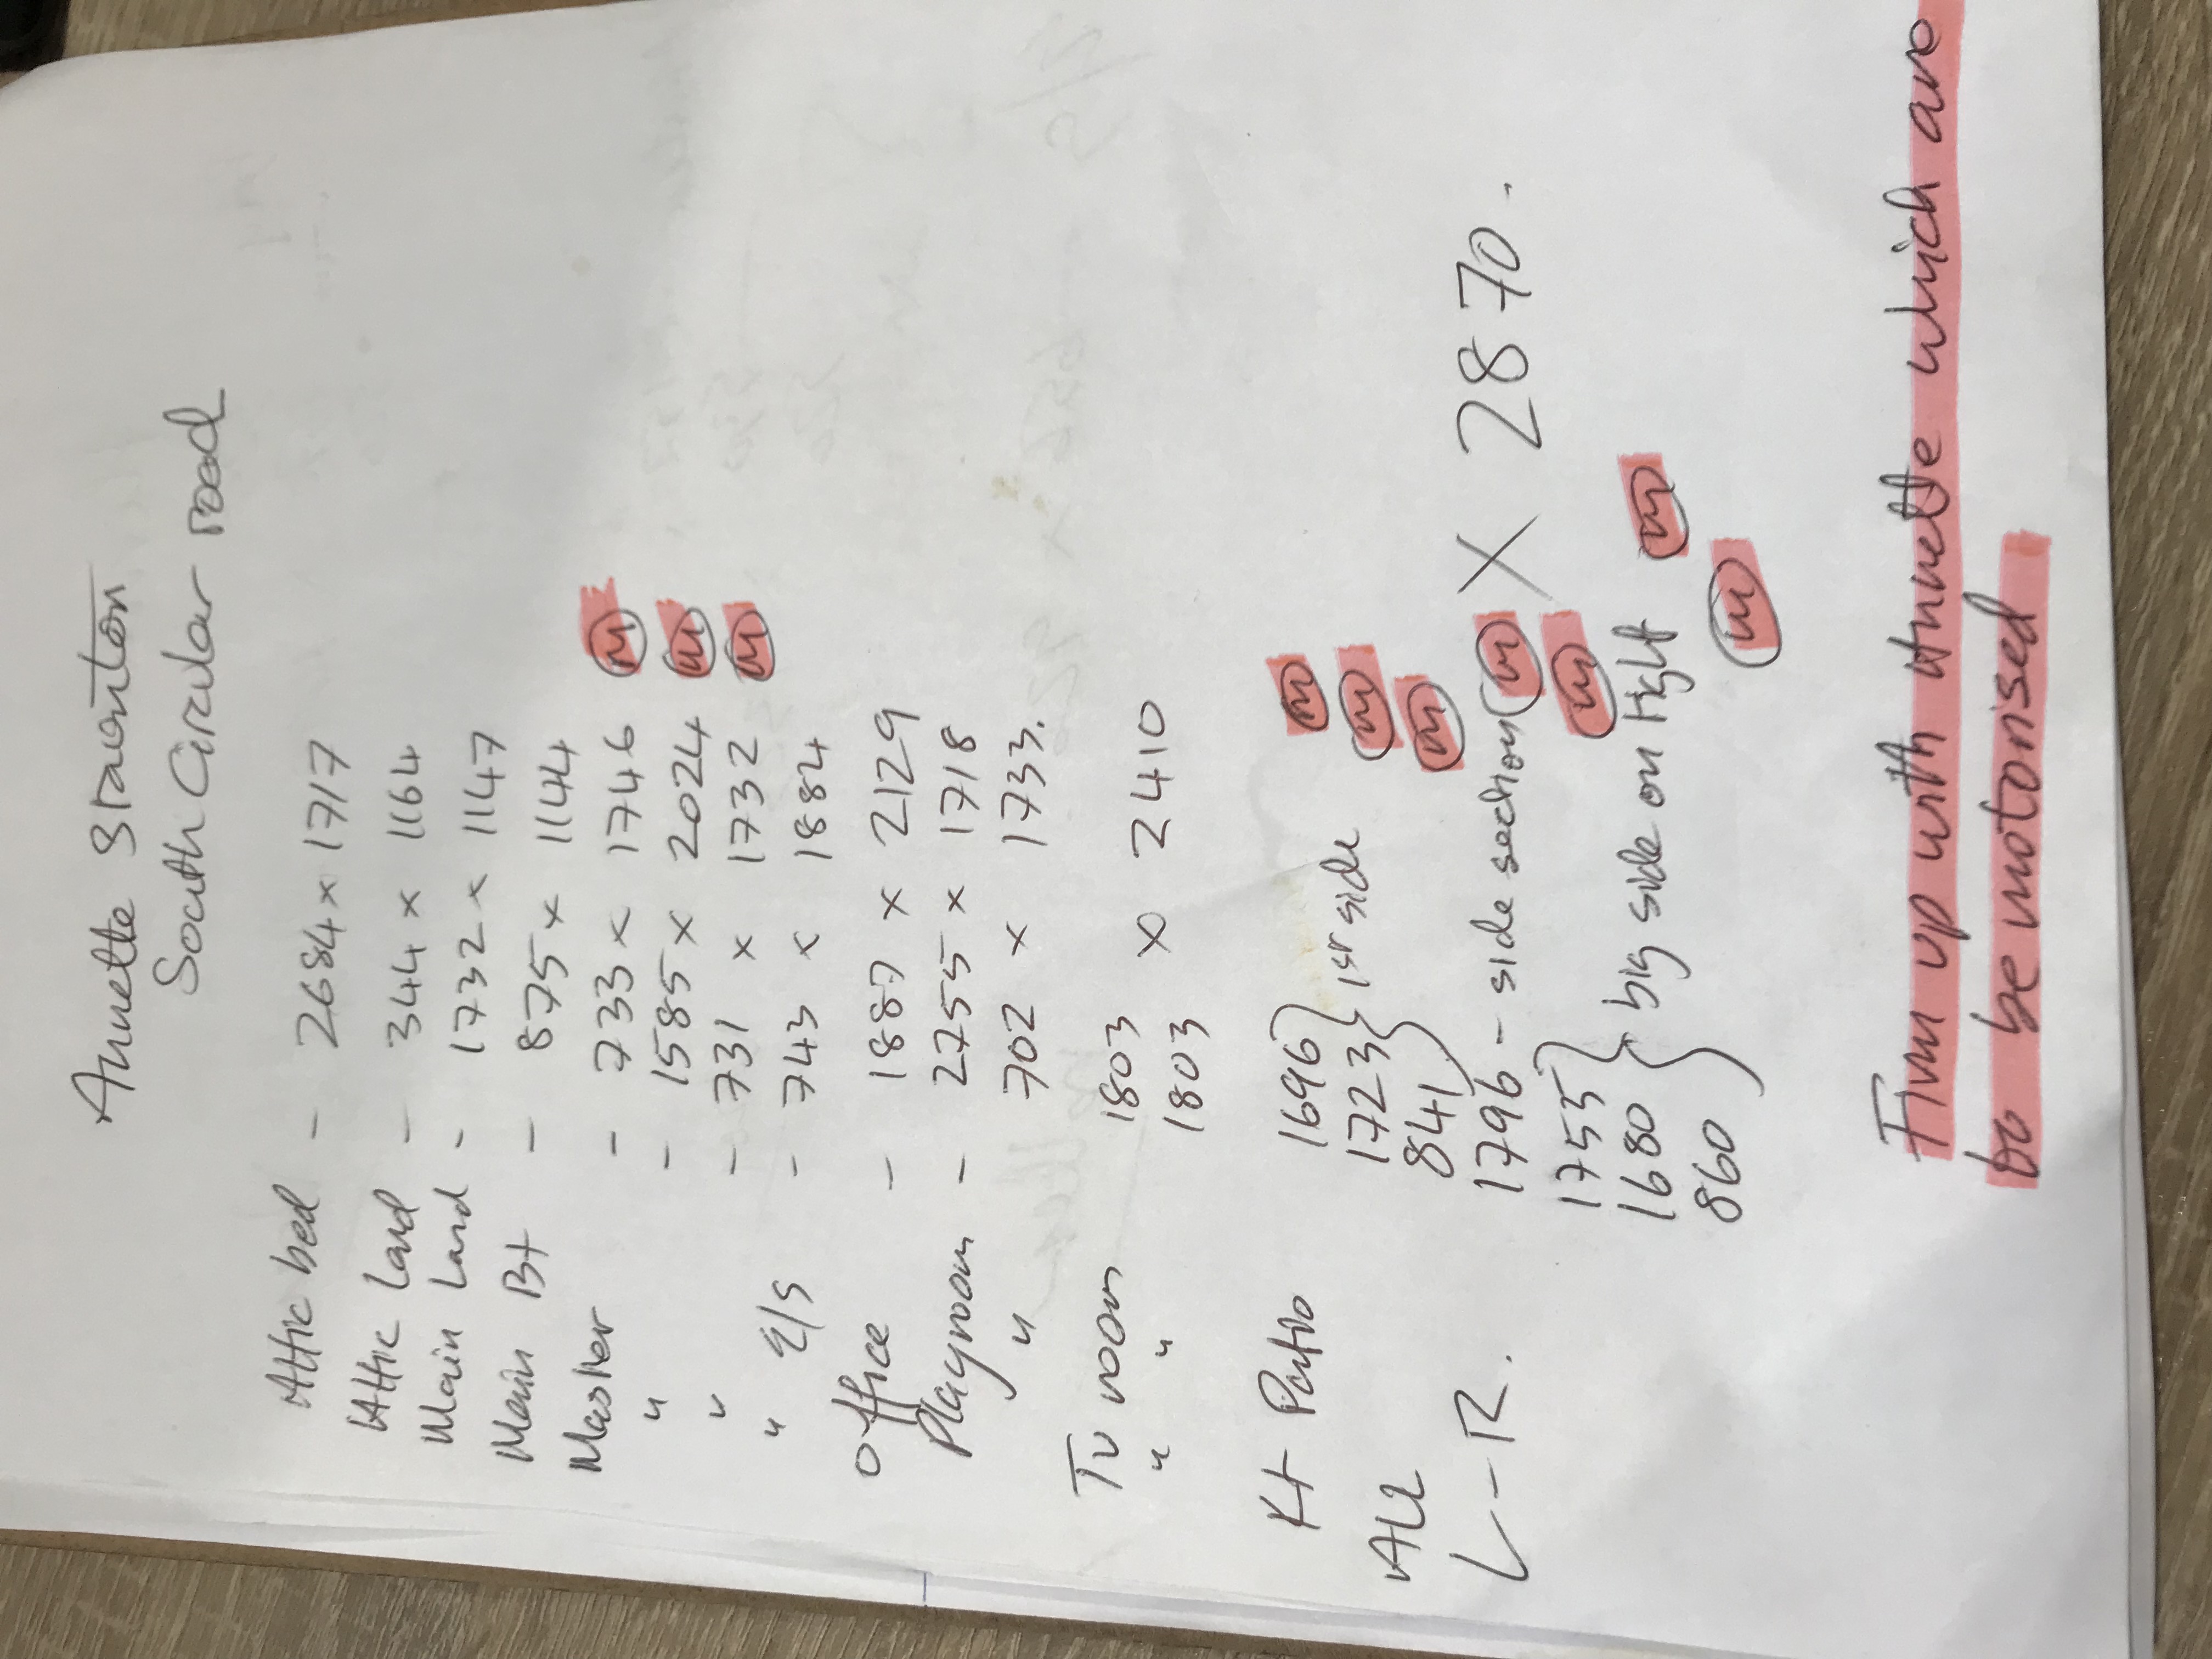 Annette Staunton
South Circular road
Attic bed - 2684 x 1717
Attic Land - 344 x 1164
Main Land - 1732 x 1147
Main Bt - 875 x 1144
Master - 733 x 1746 (M)
" - 1585 x 2024 (M)
" - 731 x 1732 (M)
" E/S - 743 x 1884
Office - 1887 x 2129
Playroom - 2755 x 1718
" 702 x 1733.
TV room 1803
" " 1803 x 2410
Kt Patio 1696 (M)
1723 } 1st side (M)
ALL 841 (M)
L-R. 1796 - side section (M) X 2870.
1753 (M)
1680 } big side on right (M)
860 (M)
Firm up with Annette which are
to be motorised